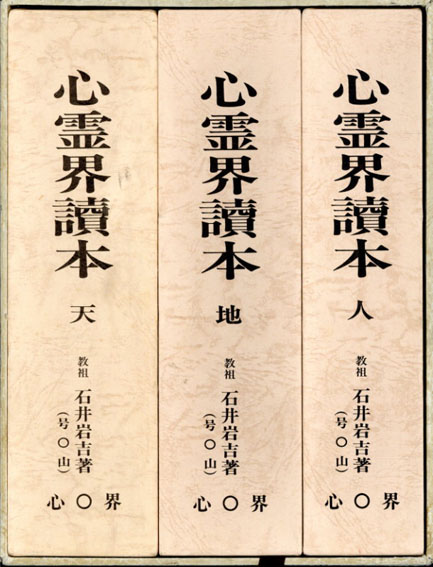 心霊界讀本
天
教祖 石井岩吉著
(号〇山)
心〇界
心霊界讀本
地
教祖 石井岩吉著
(号〇山)
心〇界
心霊界讀本
人
教祖 石井岩吉著
(号〇山)
心〇界